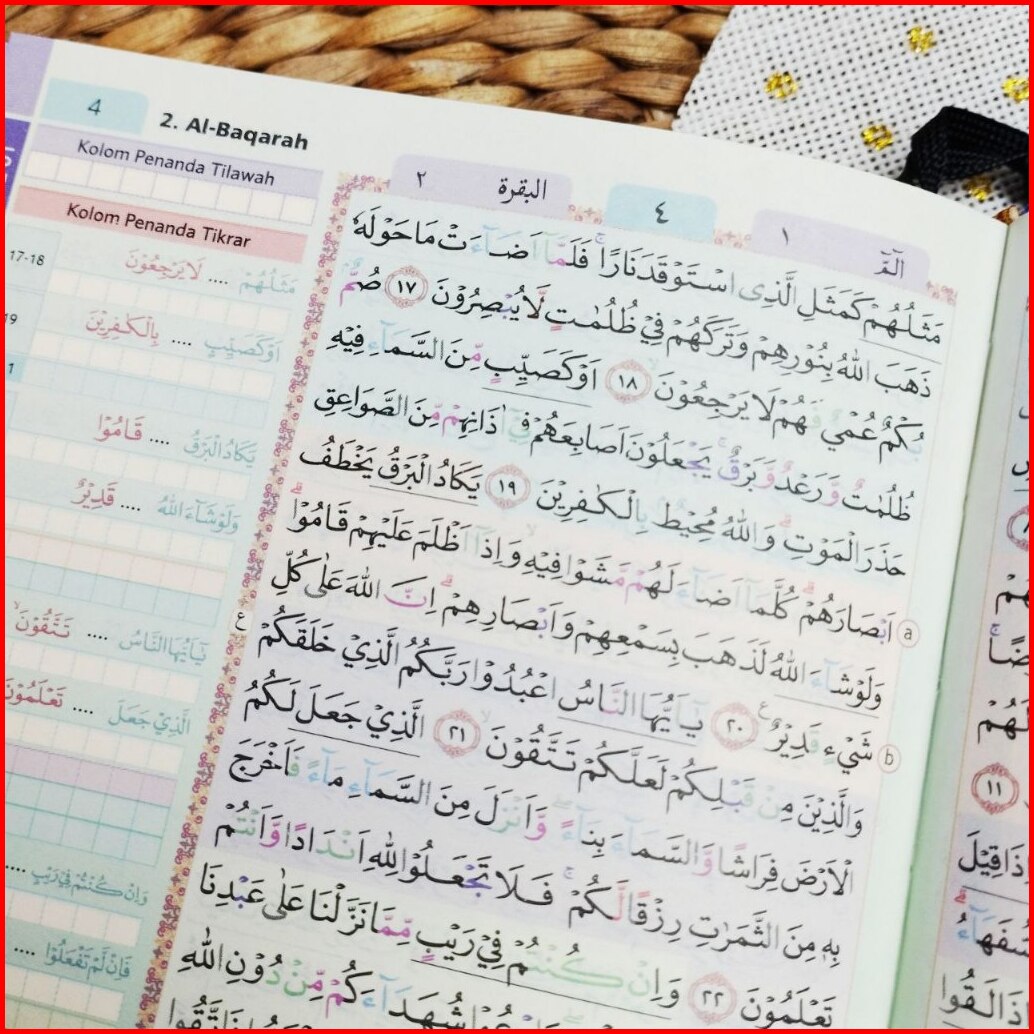 4
2. Al-Baqarah
Kolom Penanda Tilawah
Kolom Penanda Tikrar
17-18
مَثَلُهُمْ .... لَا يَرْجِعُوْنَ
19
اَوْ كَصَيِّبٍ .... بِالْكٰفِرِيْنَ
يَكَادُ الْبَرْقُ .... قَامُوْا
وَلَوْ شَاۤءَ اللّٰهُ .... قَدِيْرٌ
يٰٓاَيُّهَا النَّاسُ .... تَتَّقُوْنَ
الَّذِيْ جَعَلَ .... تَعْلَمُوْنَ
وَاِنْ كُنْتُمْ فِيْ رَيْبٍ ....
فَاِنْ لَّمْ تَفْعَلُوْا ....
الۤمّۤ ١ ٤ البقرة ٢
مَثَلُهُمْ كَمَثَلِ الَّذِى اسْتَوْقَدَ نَارًا ۚ فَلَمَّآ اَضَاۤءَتْ مَا حَوْلَهٗ
ذَهَبَ اللّٰهُ بِنُوْرِهِمْ وَتَرَكَهُمْ فِيْ ظُلُمٰتٍ لَّا يُبْصِرُوْنَ ١٧ صُمٌّ ۢ
بُكْمٌ عُمْيٌ فَهُمْ لَا يَرْجِعُوْنَ ۙ ١٨ اَوْ كَصَيِّبٍ مِّنَ السَّمَاۤءِ فِيْهِ
ظُلُمٰتٌ وَّرَعْدٌ وَّبَرْقٌ ۚ يَجْعَلُوْنَ اَصَابِعَهُمْ فِيْٓ اٰذَانِهِمْ مِّنَ الصَّوَاعِقِ
حَذَرَ الْمَوْتِ ۗ وَاللّٰهُ مُحِيْطٌ ۢ بِالْكٰفِرِيْنَ ١٩ يَكَادُ الْبَرْقُ يَخْطَفُ
اَبْصَارَهُمْ ۗ كُلَّمَآ اَضَاۤءَ لَهُمْ مَّشَوْا فِيْهِ ۙ وَاِذَآ اَظْلَمَ عَلَيْهِمْ قَامُوْا ۗ
a
وَلَوْ شَاۤءَ اللّٰهُ لَذَهَبَ بِسَمْعِهِمْ وَاَبْصَارِهِمْ ۗ اِنَّ اللّٰهَ عَلٰى كُلِّ
شَيْءٍ قَدِيْرٌ ࣖ ٢٠ يٰٓاَيُّهَا النَّاسُ اعْبُدُوْا رَبَّكُمُ الَّذِيْ خَلَقَكُمْ
b
وَالَّذِيْنَ مِنْ قَبْلِكُمْ لَعَلَّكُمْ تَتَّقُوْنَ ۙ ٢١ الَّذِيْ جَعَلَ لَكُمُ
الْاَرْضَ فِرَاشًا وَّالسَّمَاۤءَ بِنَاۤءً ۖ وَّاَنْزَلَ مِنَ السَّمَاۤءِ مَاۤءً فَاَخْرَجَ
بِهٖ مِنَ الثَّمَرٰتِ رِزْقًا لَّكُمْ ۚ فَلَا تَجْعَلُوْا لِلّٰهِ اَنْدَادًا وَّاَنْتُمْ
تَعْلَمُوْنَ ٢٢ وَاِنْ كُنْتُمْ فِيْ رَيْبٍ مِّمَّا نَزَّلْنَا عَلٰى عَبْدِنَا
مِّنْ دُوْنِ اللّٰهِ
١١